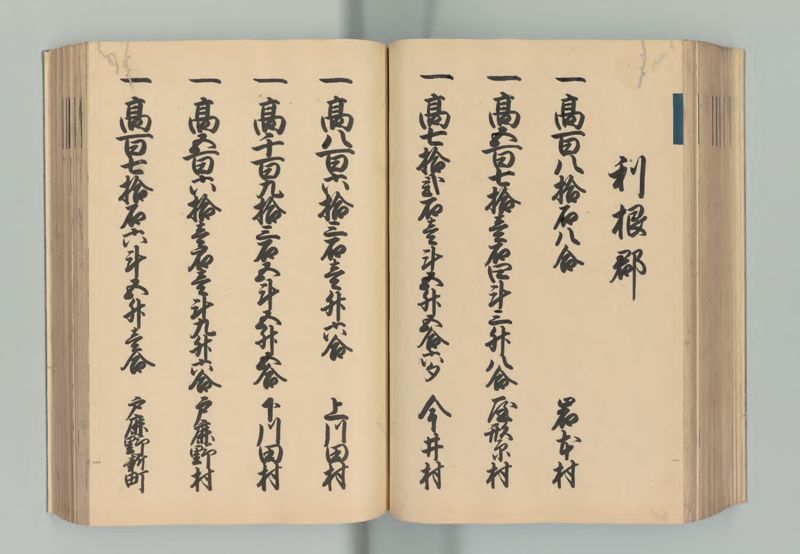 利根郡
一高百八拾石八合 岩本村
一高五百七拾壱石四斗三升八合 屋形原村
一高七拾弐石壱斗五升五合六夕 今井村
一高八百六拾三石壱升六合 上川田村
一高千百九拾三石五斗五升五合 下川田村
一高五百六拾壱石壱斗九升六合 戸鹿野村
一高百七拾石六斗五升壱合 戸鹿野新町